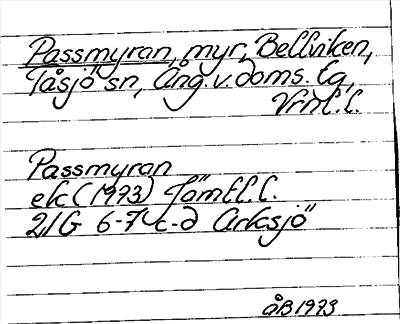 Passmyran, myr, Bellviken,
Tåsjö sn, Ång. v. doms. tg,
Vrnl. l.
Passmyran
ek (1973) Jämtl. l.
21G 6-7 c-d Arksjö
ÅB 1973